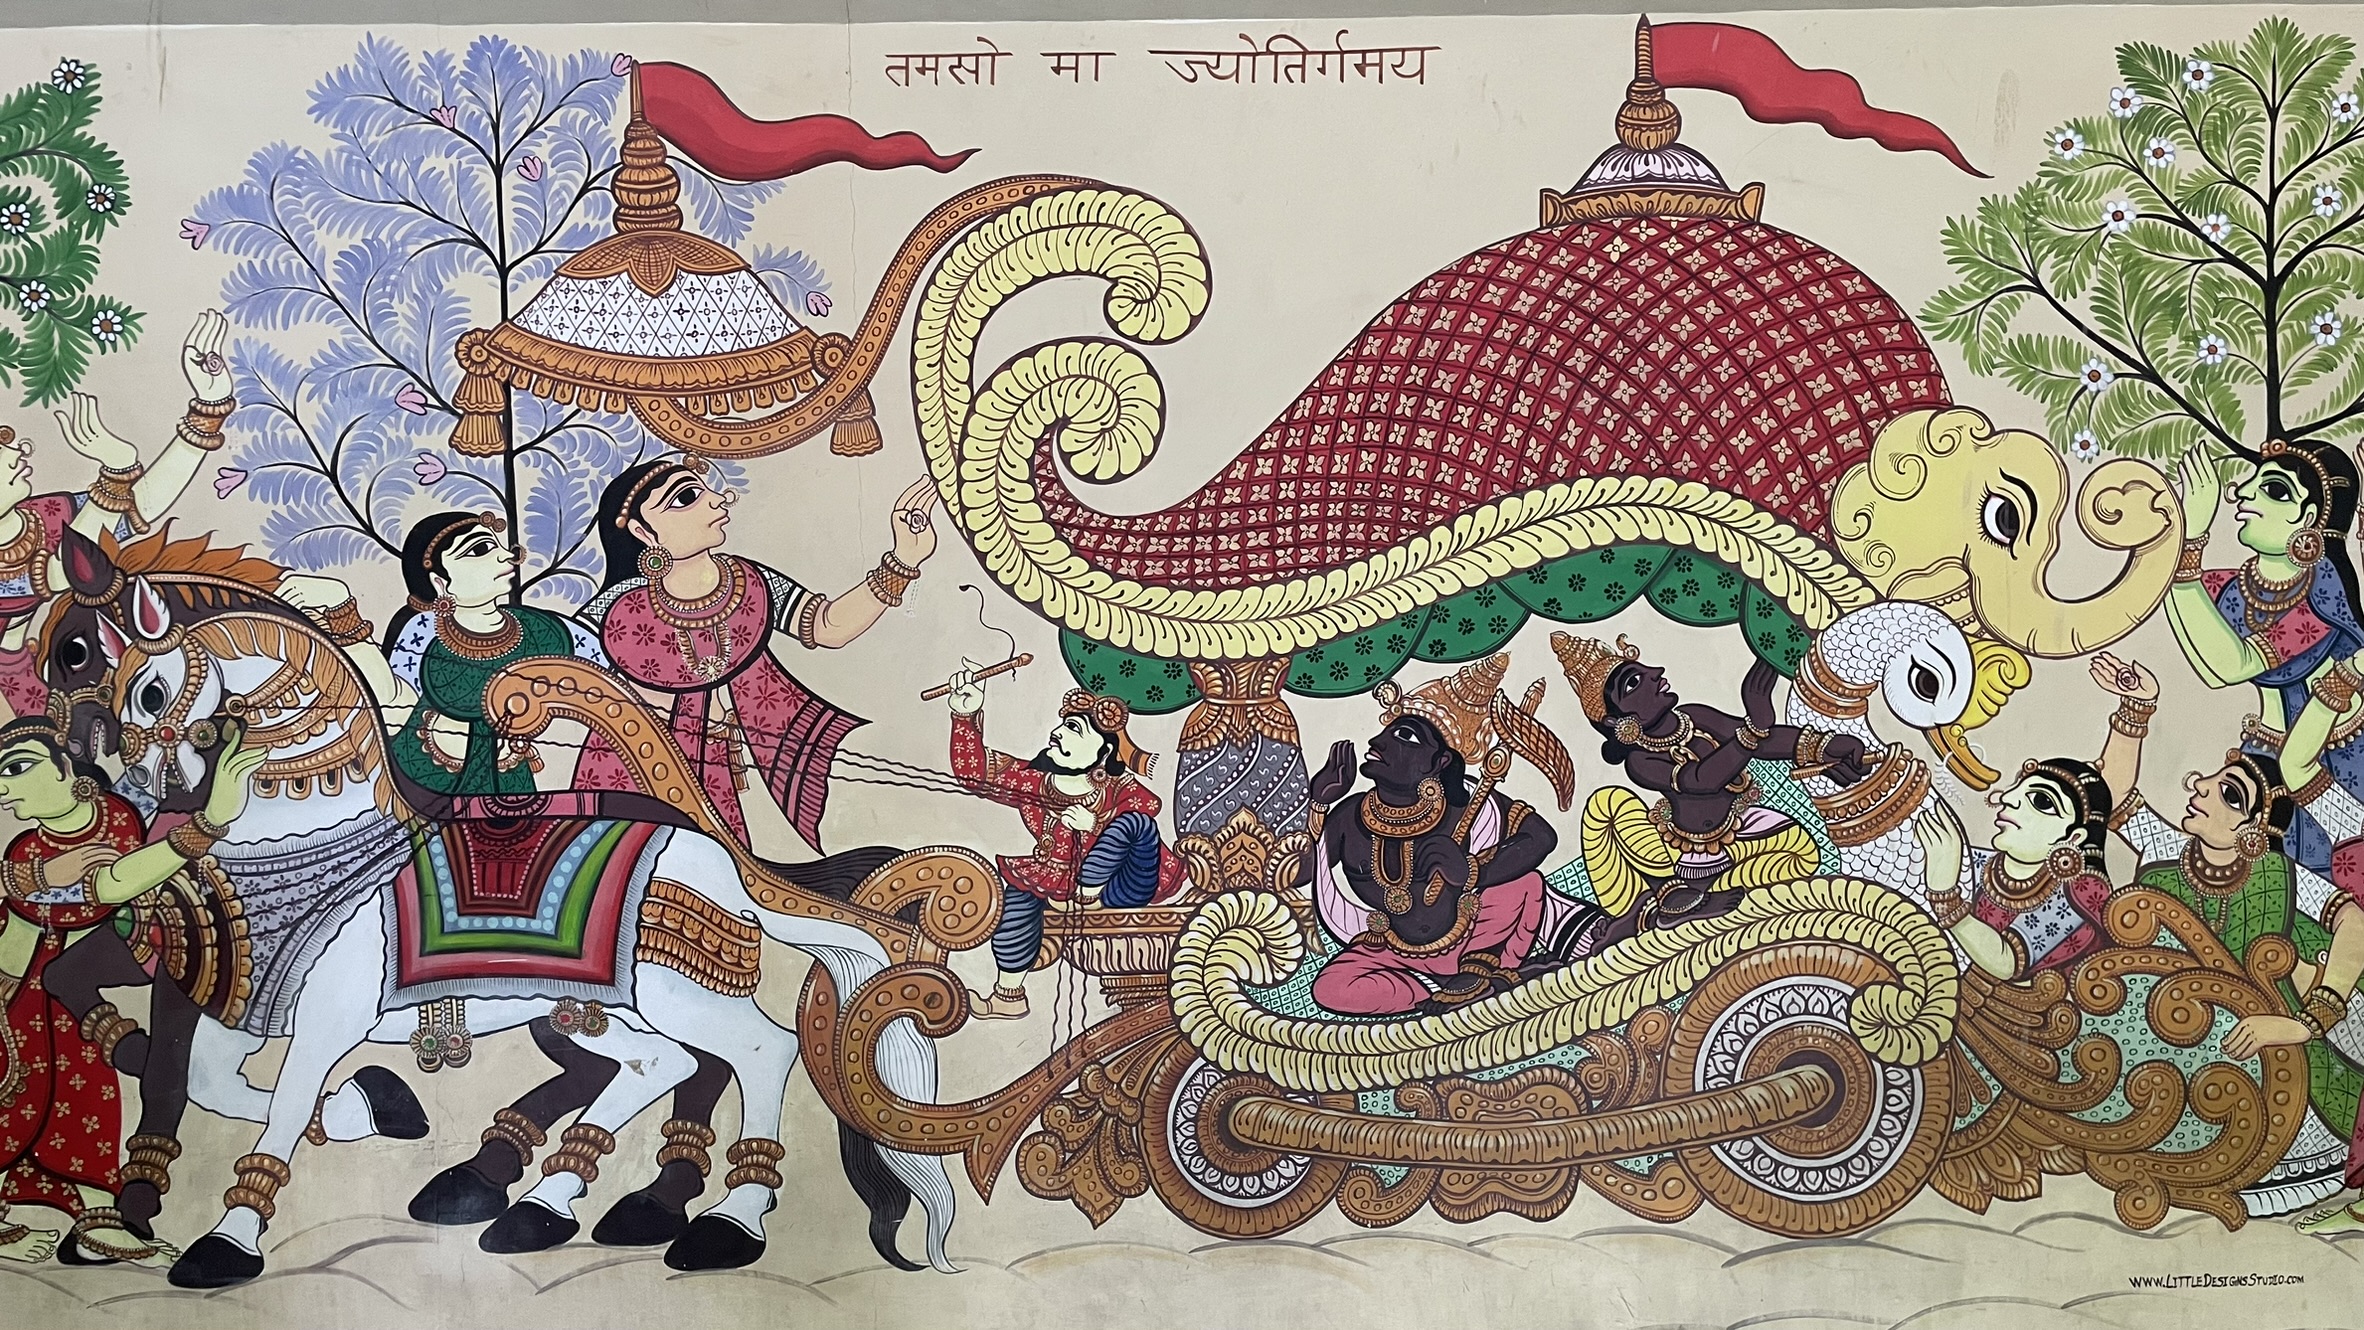 तमसो मा ज्योतिर्गमय
WWW.LITTLEDESIGNSSTUDIO.COM